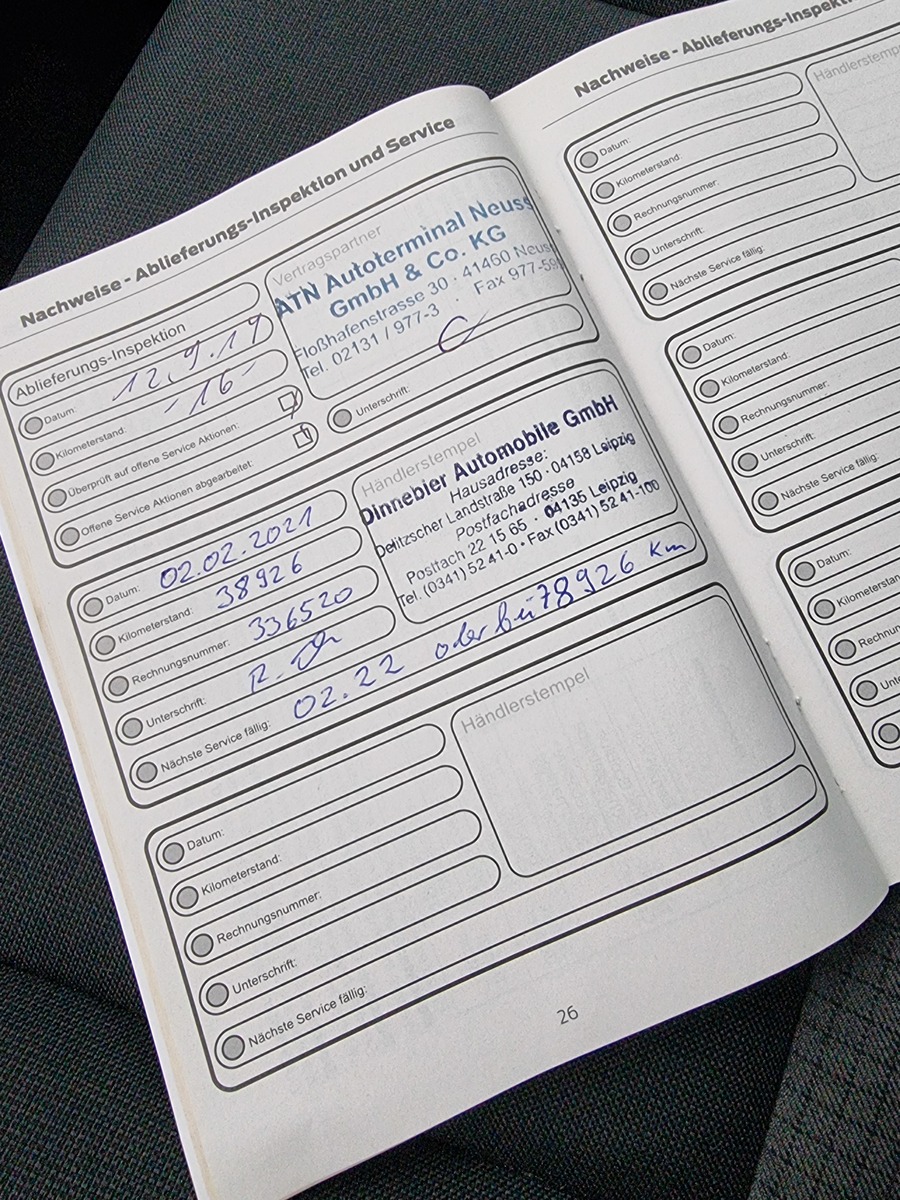 Nachweise - Ablieferungs-Inspektion und Service
Ablieferungs-Inspektion
Datum: 12.9.19
Kilometerstand: - 16 -
Überprüft auf offene Service Aktionen:
Offene Service Aktionen abgearbeitet:
Vertragspartner
ATN Autoterminal Neuss
GmbH & Co. KG
Floßhafenstrasse 30 · 41460 Neuss
Tel. 02131 / 977-3 · Fax 977-59
Unterschrift:
Datum: 02.02.2021
Kilometerstand: 38926
Rechnungsnummer: 336520
Unterschrift:
Nächste Service fällig: 02.22 oder bei 78926 km
Händlerstempel
Dinnebier Automobile GmbH
Hausadresse:
Delitzscher Landstraße 150 · 04158 Leipzig
Postfachadresse
Postfach 22 15 65 · 04135 Leipzig
Tel. (0341) 52 41-0 • Fax (0341) 52 41-100
Datum:
Kilometerstand:
Rechnungsnummer:
Unterschrift:
Nächste Service fällig:
Händlerstempel
26
Nachweise - Ablieferungs-Inspekti
Datum:
Kilometerstand:
Rechnungsnummer:
Unterschrift:
Nächste Service fällig:
Händlerstempe
Datum:
Kilometerstand:
Rechnungsnummer:
Unterschrift:
Nächste Service fällig:
Datum:
Kilometerstan
Rechnun
Unte